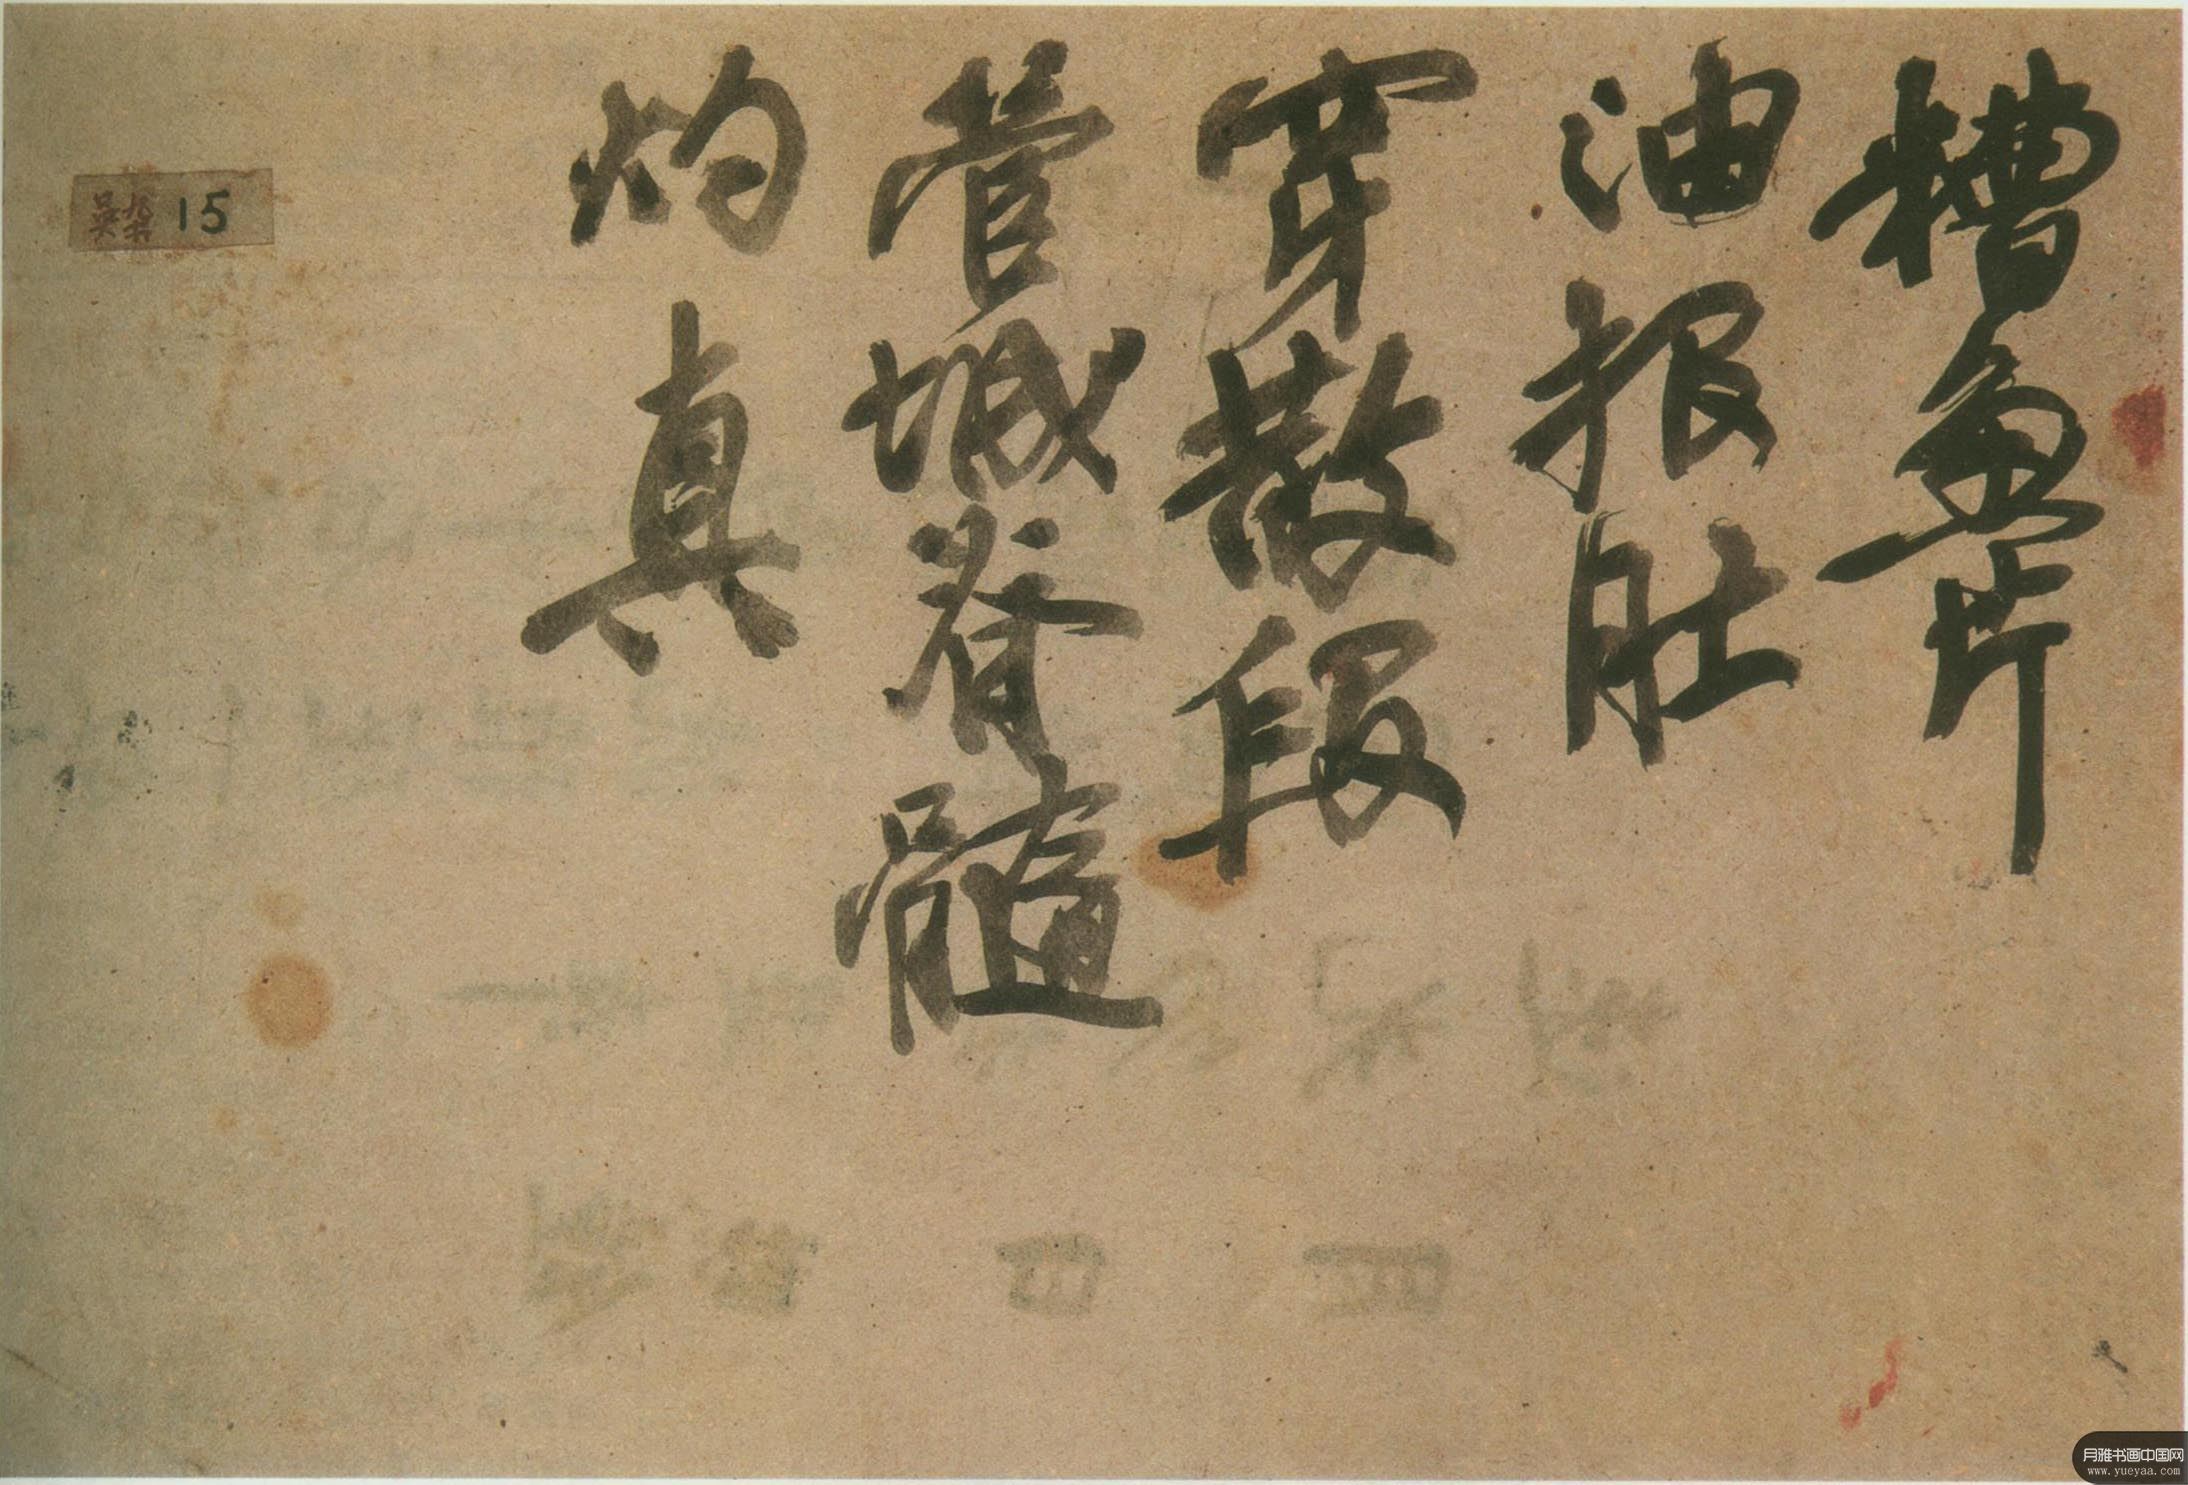 糟魚片
油報肚
穿散段
管城脊髓
灼真
15
月雅书画中国网
www.yueyaa.com